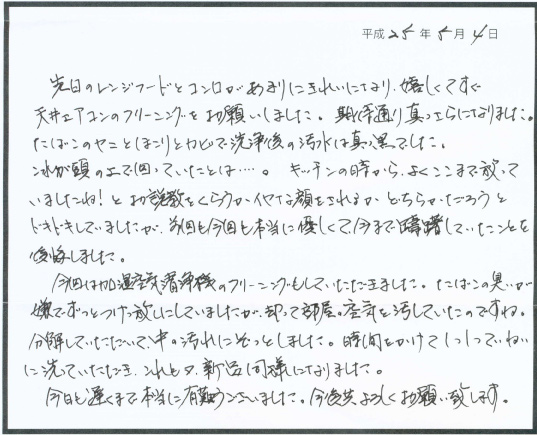 平成25年5月4日
先日のレンジフードとコンロがあまりにきれいになり、嬉しくてすぐ
天井エアコンのクリーニングをお願いしました。期待通り真っ白になりました。
たばこのヤニとほこりとカビで洗浄後の汚水は真っ黒でした。
これが頭の上で回っていたとは…。キッチンの時から、よくここまで放って
いましたね!とお説教をくらうか、イヤな顔をされるか、どちらかだろうと
ドキドキしていましたが、前回も今回も本当に優しくて今まで躊躇していたことを
後悔しました。
今回は加湿空気清浄機のクリーニングもしていただきました。たばこの臭いが
嫌でずっとつけっ放しにしていましたが、却って部屋の空気を汚していたのですね。
分解していただいて、中の汚れにぞっとしました。時間をかけて1つ1つていねい
に洗っていただき、これも又、新品同様になりました。
今日も遅くまで本当に有難うございました。今後共よろしくお願い致します。